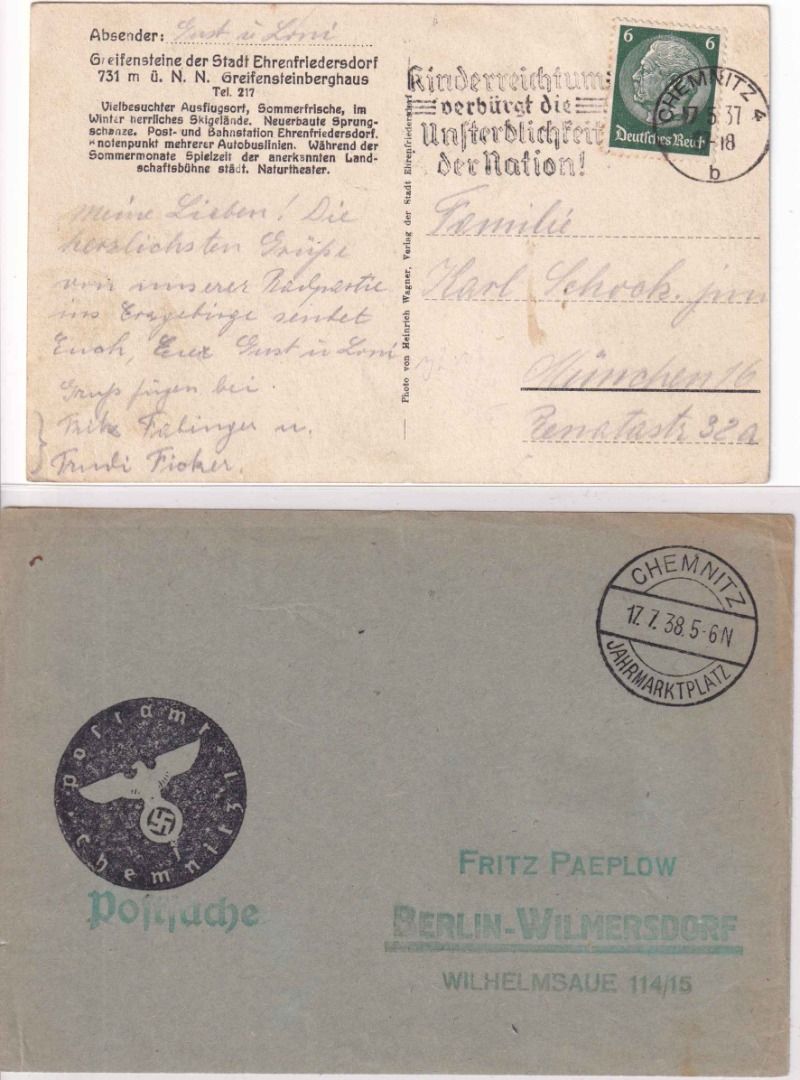 Absender: Gust u Loni
Greifensteine der Stadt Ehrenfriedersdorf
731 m ü. N. N. Greifensteinberghaus
Tel. 217
Vielbesuchter Ausflugsort, Sommerfrische, im
Winter herrliches Skigelände. Neuerbaute Sprung-
schanze. Post- und Bahnstation Ehrenfriedersdorf.
Knotenpunkt mehrerer Autobuslinien. Während der
Sommermonate Spielzeit der anerkannten Land-
schaftsbühne städt. Naturtheater.
Meine Lieben! Die
herzlichsten Grüße
von unserer Radpartie
ins Erzgebirge sendet
Euch, Eure Gust u Loni
Gruss fügen bei
Fritz Fabinger u.
Trudi Ficker.
Photo von Heinrich Wagner, Verlag der Stadt Ehrenfriedersdorf
Kinderreichtum
verbürgt die
Unsterblichkeit
der Nation!
6 6
Deutsches Reich
CHEMNITZ 4
17.5.37
-18
b
Familie
Karl Schock. jun
München 16
Renatastr 32a
CHEMNITZ
17. 7. 38. 5-6 N
JAHRMARKTPLATZ
Postamt
Chemnitz 1
Postsache
FRITZ PAEPLOW
BERLIN-WILMERSDORF
WILHELMSAUE 114/15